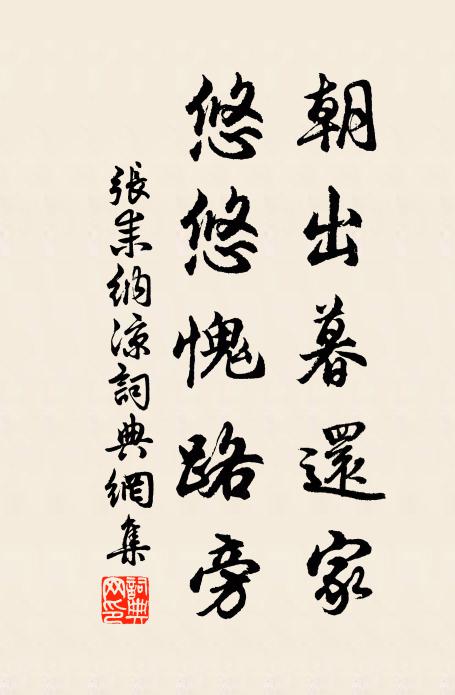 朝出暮還家
悠悠愧路旁
張耒納涼詞典網集
詞典网印